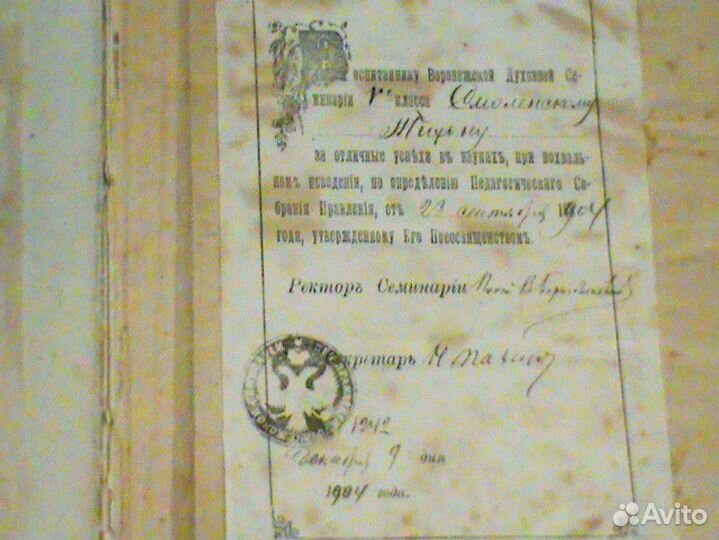 Воспитаннику Воронежской Духовной Се-
минаріи V класса Смоленскому
Тихону
за отличные успѣхи въ наукахъ, при похваль-
номъ поведеніи, по опредѣленію Педагогическаго Со-
бранія Правленія, отъ 28 сентября 1904
года, утвержденному Его Преосвященствомъ.
Ректоръ Семинаріи
Секретарь Н.
1242
Декабря 9 дня
1904 года.
Avito